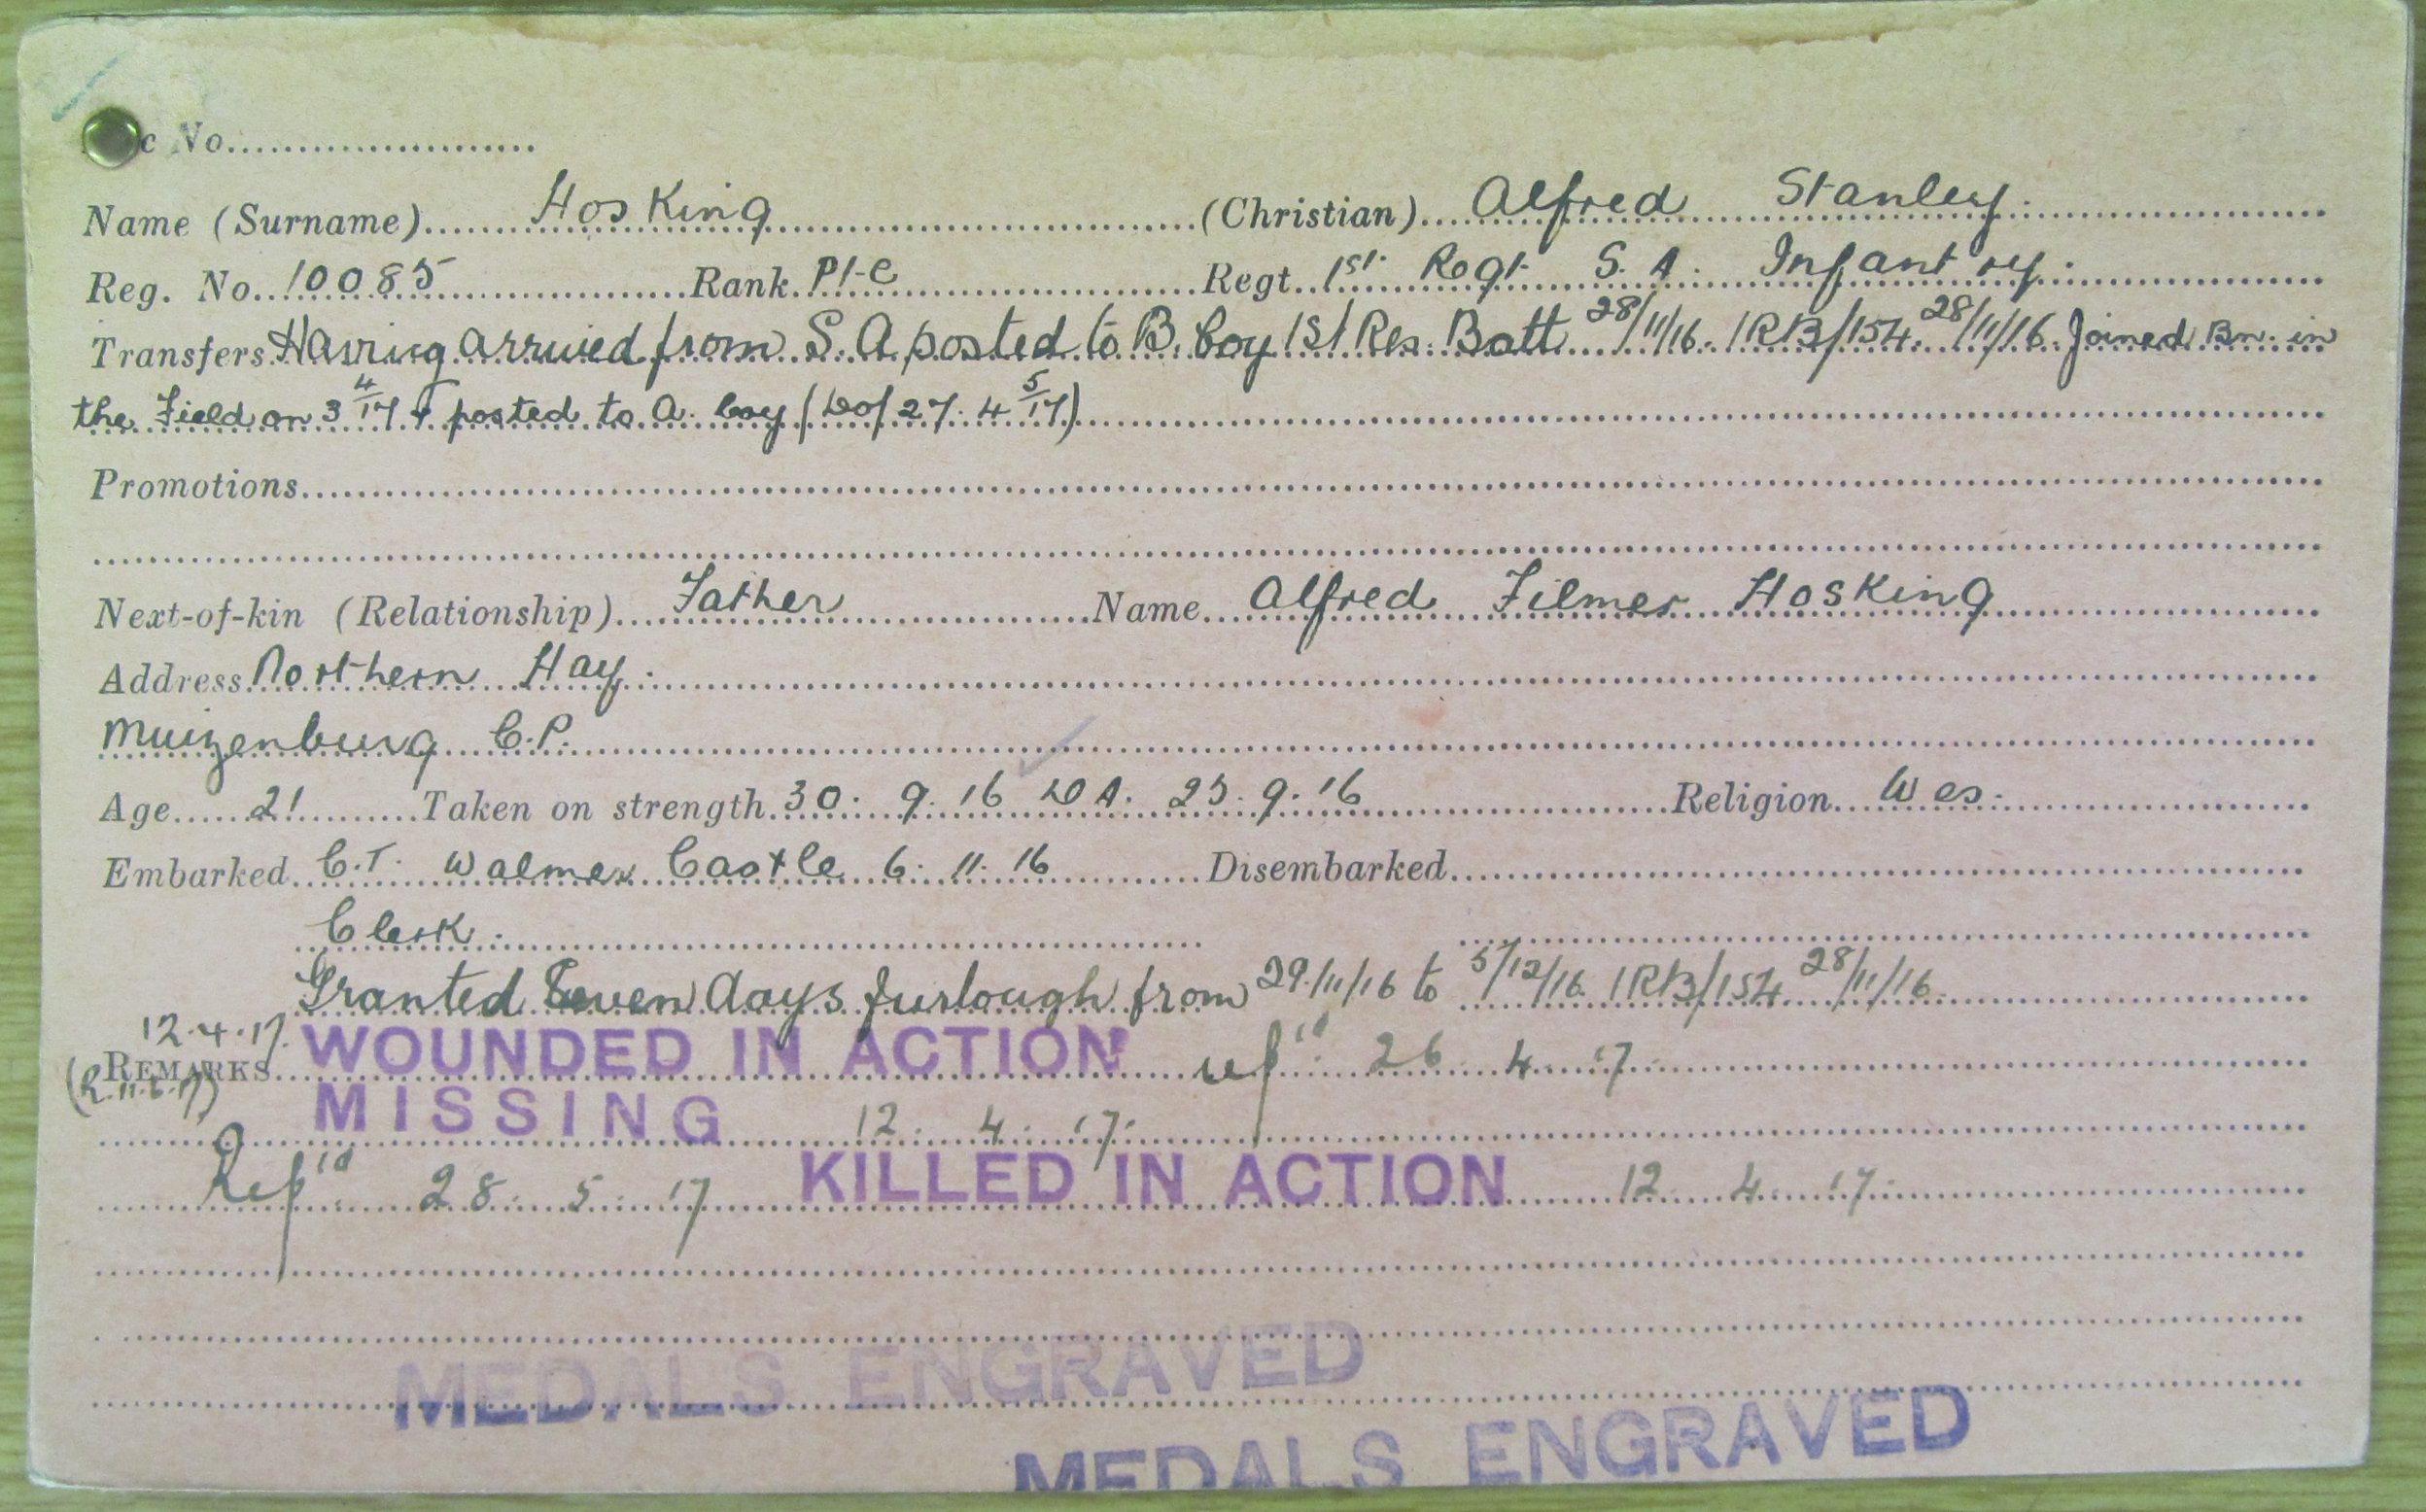 c No.
Name (Surname) Hosking (Christian) Alfred Stanley.
Reg. No. 10085 Rank Pte Regt. 1st. Regt. S. A. Infantry.
Transfers Having arrived from S. A. posted to B. Coy 1st Res. Batt 28/11/16. 1RB/154 28/11/16. Joined Bn. in
the Field on 3 4/17 & posted to A. Coy (Do/ 27. 4 5/17)
Promotions
Next-of-kin (Relationship) Father Name Alfred Filmer Hosking
Address Northern Hay.
Muizenburg C.P.
Age 21 Taken on strength 30. 9. 16 DA. 25. 9. 16 Religion Wes.
Embarked C.T. Walmer Castle 6. 11. 16 Disembarked
Clerk.
Granted Seven days furlough from 29/11/16 to 5/12/16 1RB/154 28/11/16.
12.4.17. WOUNDED IN ACTION rep'd. 26. 4. 17.
REMARKS
(R.11.6.17)
MISSING 12. 4. 17.
Rep'd. 28. 5. 17 KILLED IN ACTION 12. 4. 17.
MEDALS ENGRAVED
MEDALS ENGRAVED